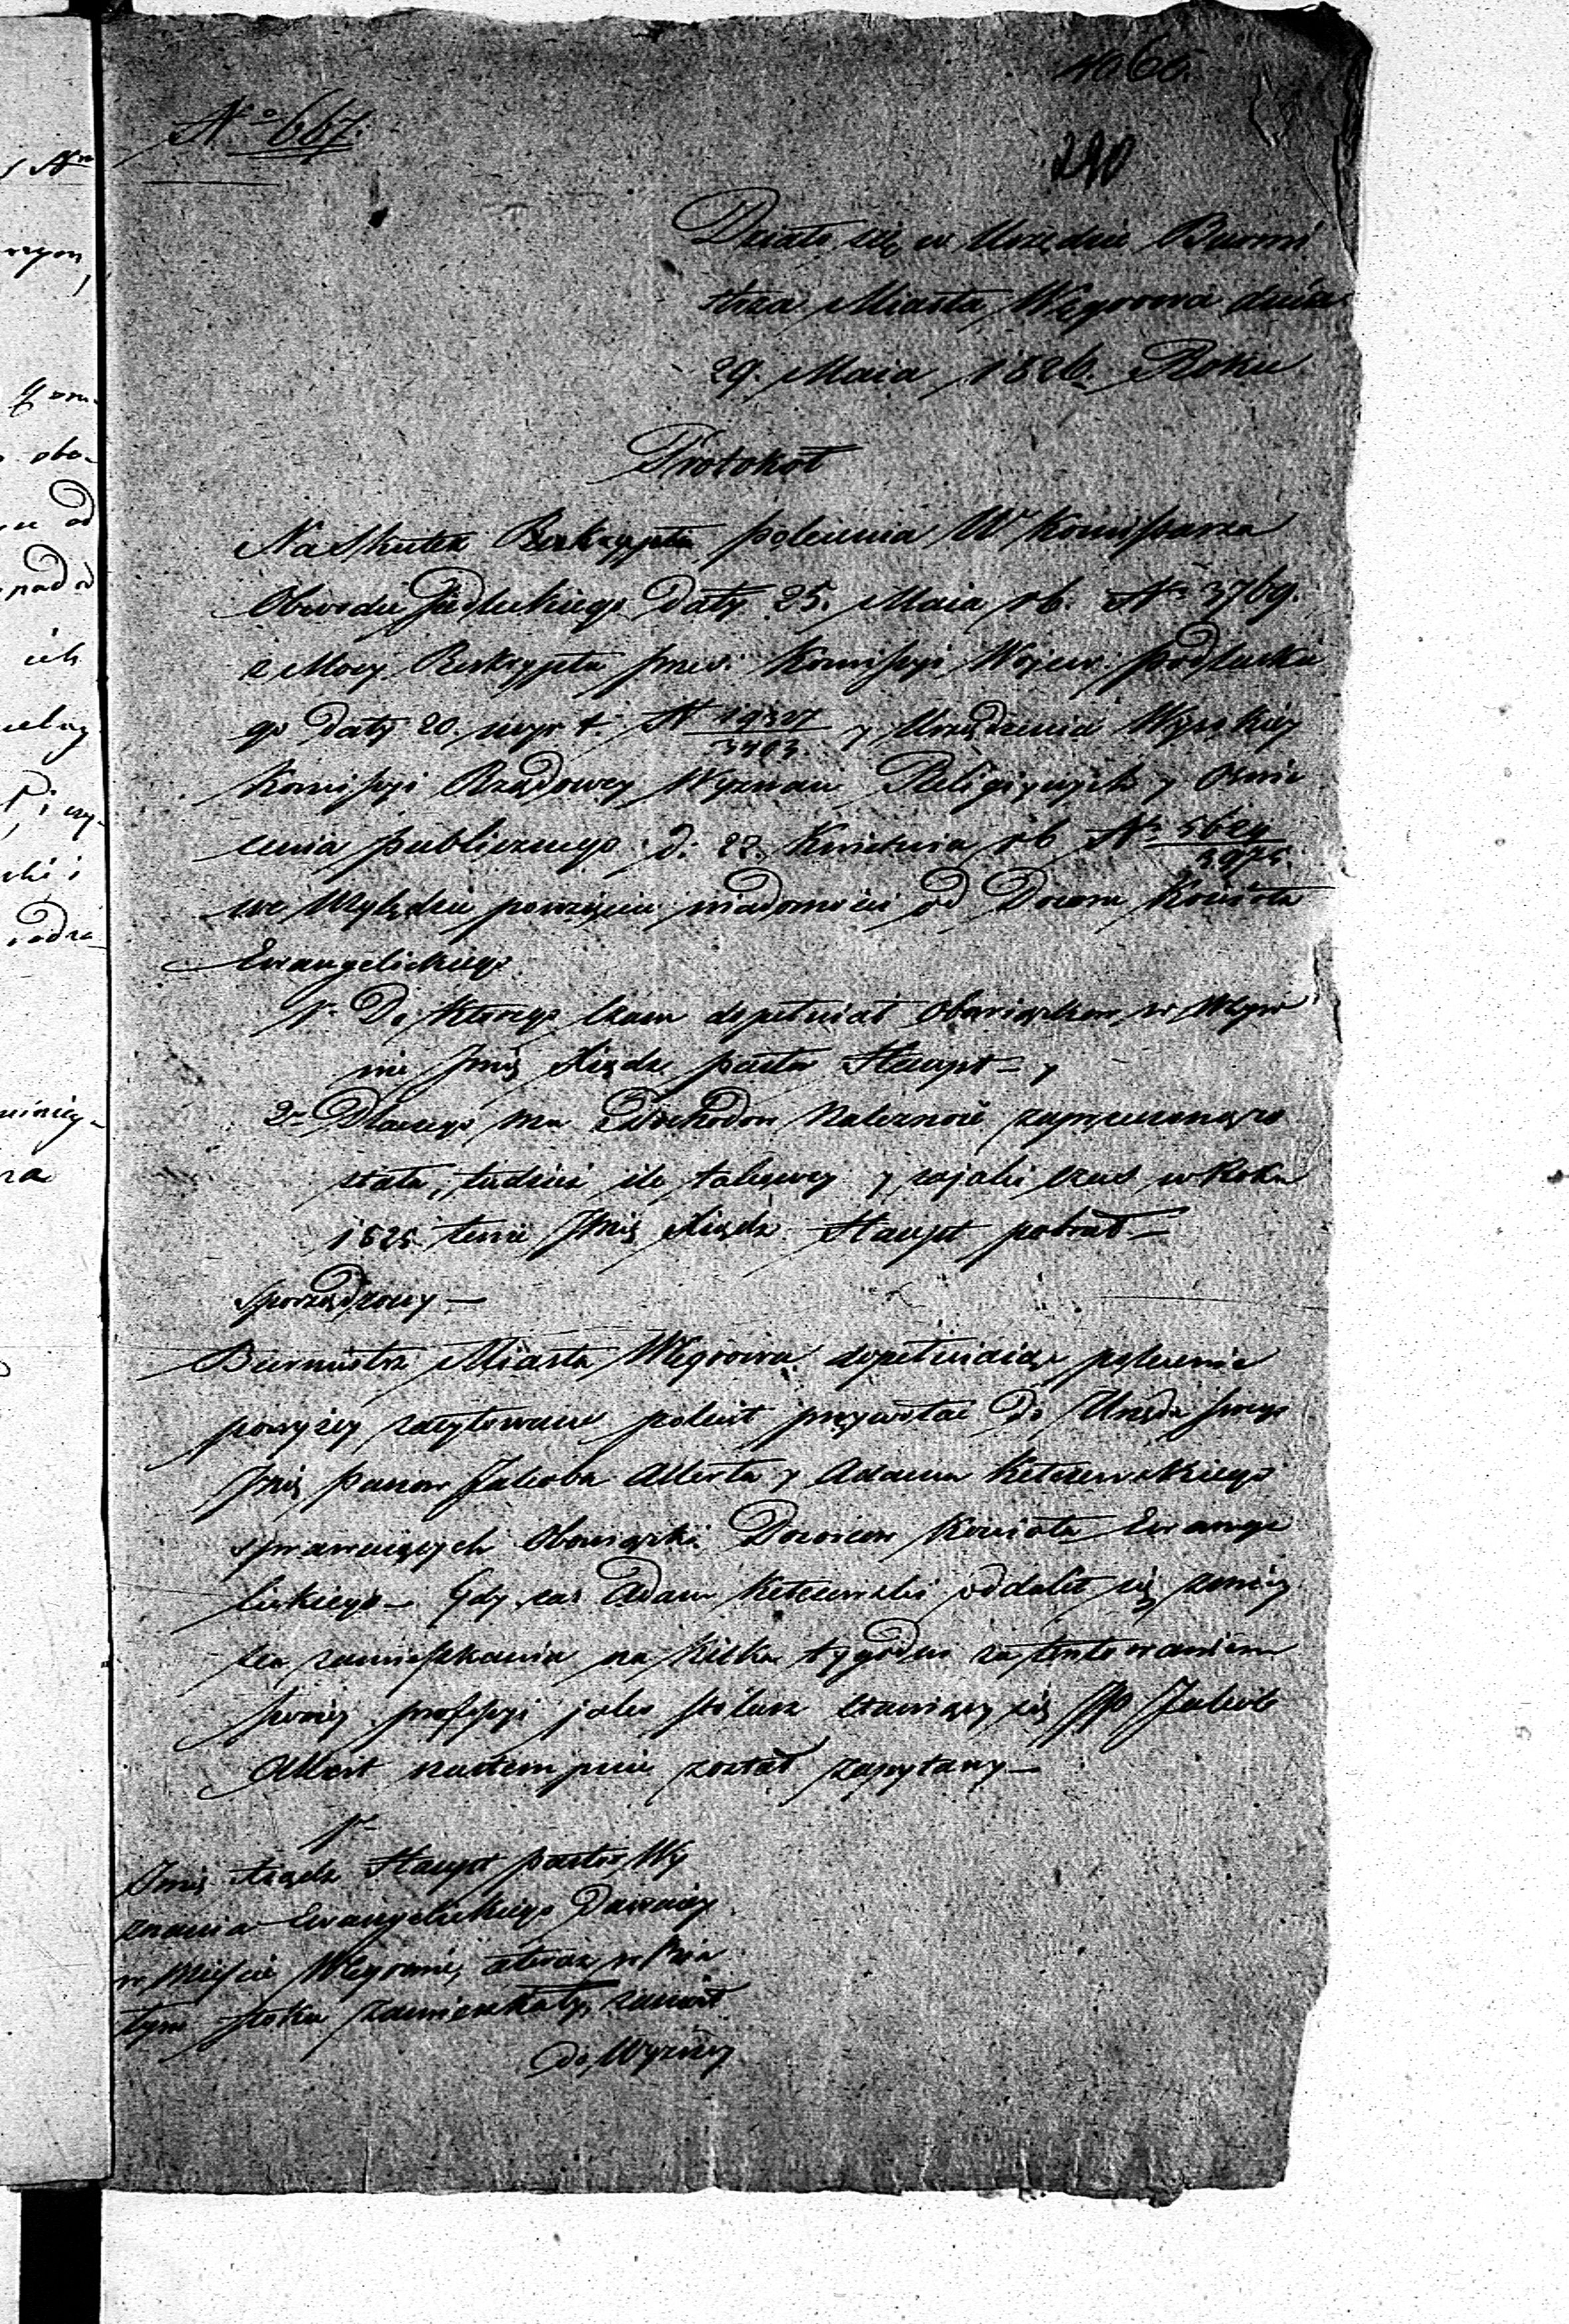 No 667.
240
Działo się w Urzędzie Burmi
strza Miasta Węgrowa dnia
29. Maia 1826. Roku
Protokoł
Na Skutek Reskryptu polecenia W Kommissarza
Obwodu Siedleckiego Daty 25. Maia rb. No 3769.
z Mocy Reskryptu Kommissyi Wojew: podlaskie
go Daty 20. t. N 19327 y Urządzenia Wysokiey
Kommissyi Rządowey Wyznań Religijnych y Oswie
cenia publicznego d: 22. Kwietnia rb No 5629
we Względzie powzięcia wiadomości od Dozoru Kościoła
Ewangelickiego
1o Do ktorego Czasu dopełniał Obowiązkow w Węgro
wie Jmć Xiądz pastor Haupt – y
2o Dlaczego ma Dochodow Należność zaprzeczoną zo
stała, tudzież ile takowey y za jaki czas w Roku
1825 tenże Jmć Xiądz Haupt pobrał –
sporządzony –
Burmistrz Miasta Węgrowa dopełniaiąc polecenie
powyżey zacytowane polecił przywołać do Urzędu swego
Jmć Panow Jakoba Alberta y Adama Ketczewskiego
sprawuiących Obowiązki Dozorcow Kościoła Ewange
lickiego – Gdy zaś Adam Ketczewski oddalił się z miey
sca zamieszkania na kilka tygodni za
swoiey professyi jako stolarz stawiący się JP Jakob
Albert następnie został zapytany –
1o
Jmć Xiądz Haupt pastor Wy
znania Ewangelickiego Dawniey
w Mieście Węgrowie, a teraz w Bia
łym stoku zamieszkały, zaniósł
do Wyższey